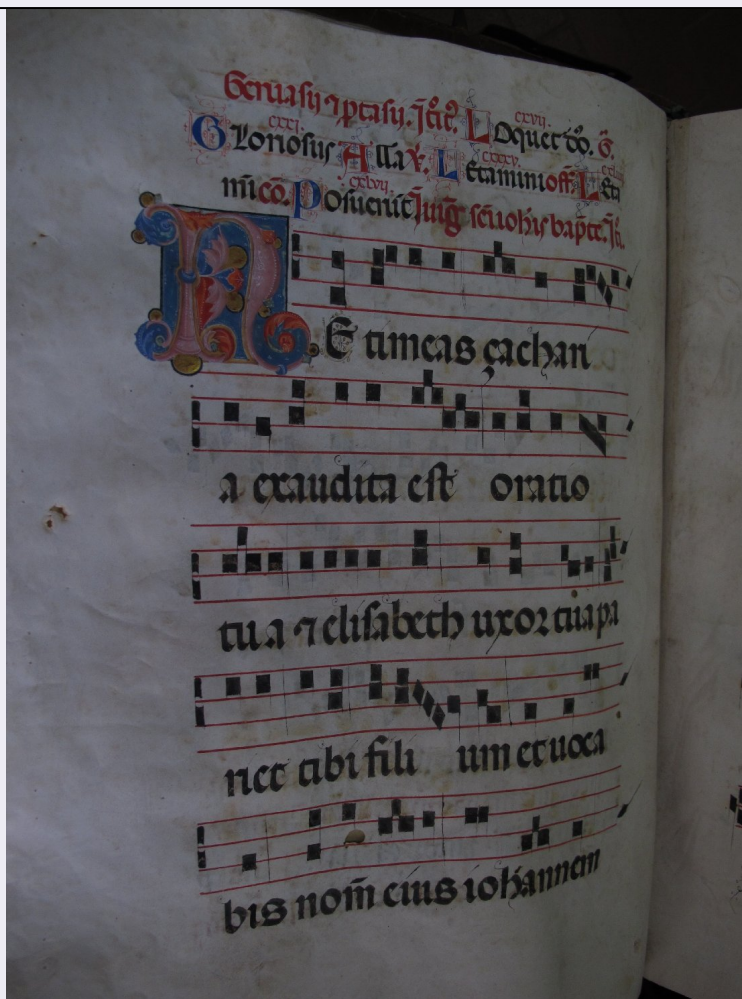 Geruasij ⁊ ptasij. Itr̄. Loquet do. G.
cxvij.
Gloriosus Alla. V. Letamini off. Leta
cxxi. cxxxv.
mi cō. Posuerūt In uig̃ sc̄i iohis bapte. It.
cxlvij.
NE timeas çachari
a exaudita est oratio
tu a ⁊ elisabeth uxor tua pa
riet tibi fili um et uoca
bis nom̄ eius iohannem